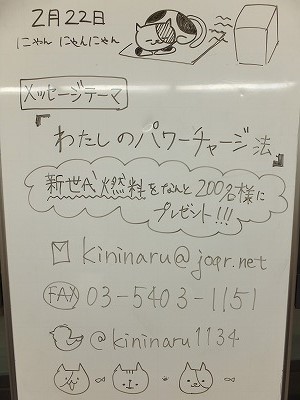 2月22日
にゃん にゃんにゃん
メッセージテーマ
『わたしのパワーチャージ法』
新世代燃料をなんと200名様に
プレゼント!!!
kininaru@joqr.net
FAX 03-5403-1151
@kininaru1134